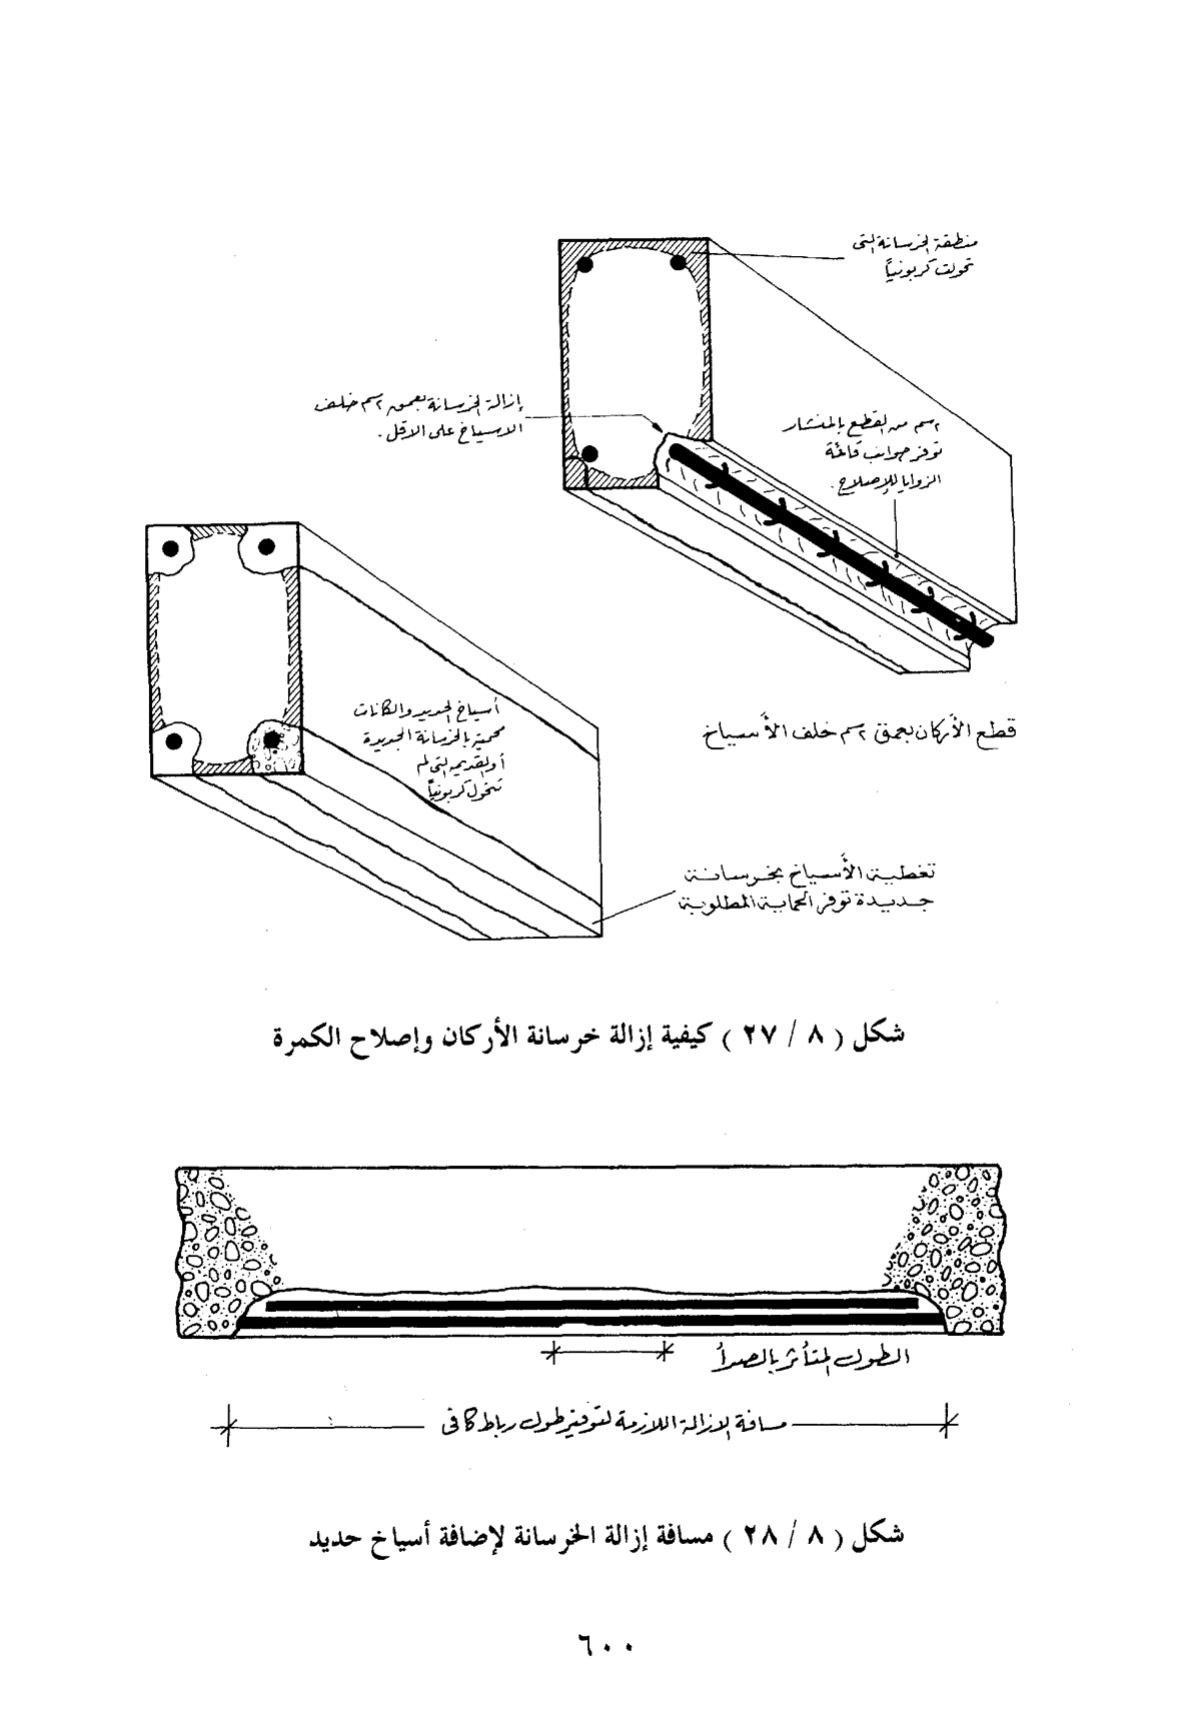 منطقة الخرسانة التى
تحولت كربونياً
إزالة الخرسانة بعمق ٢سم خلف
الاسياخ على الاقل .
٢سم من القطع بالمنشار
توفر جوانب قائمة
الزوايا للإصلاح .
قطع الأركان بعمق ٢سم خلف الأسياخ
أسياخ الحديد والكانات
محمية بالخرسانة الجديدة
أو القديمه التى لم
تتحول كربونياً
تغطية الأسياخ بخرسانة
جديدة توفر الحماية المطلوبة
شكل ( ٨ / ٢٧ ) كيفية إزالة خرسانة الأركان وإصلاح الكمرة
الطول المتأثر بالصدأ
مسافة الازالة اللازمة لتوفير طول رباط كافى
شكل ( ٨ / ٢٨ ) مسافة إزالة الخرسانة لإضافة أسياخ حديد
٦٠٠